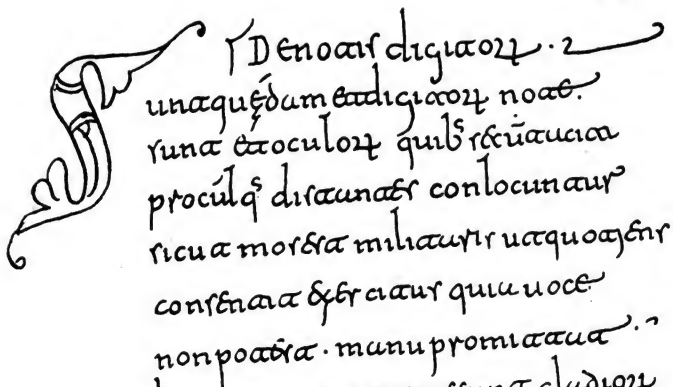 DE notis digitoꝝ
unt quędam et digitoꝝ note.
sunt et oculoꝝ quibꝰ secū taciti
proculqꝫ distantes conlocuntur
sicut mos est militaris ut quotiens
consentit exercitus quia uoce
non potest · manu promittat